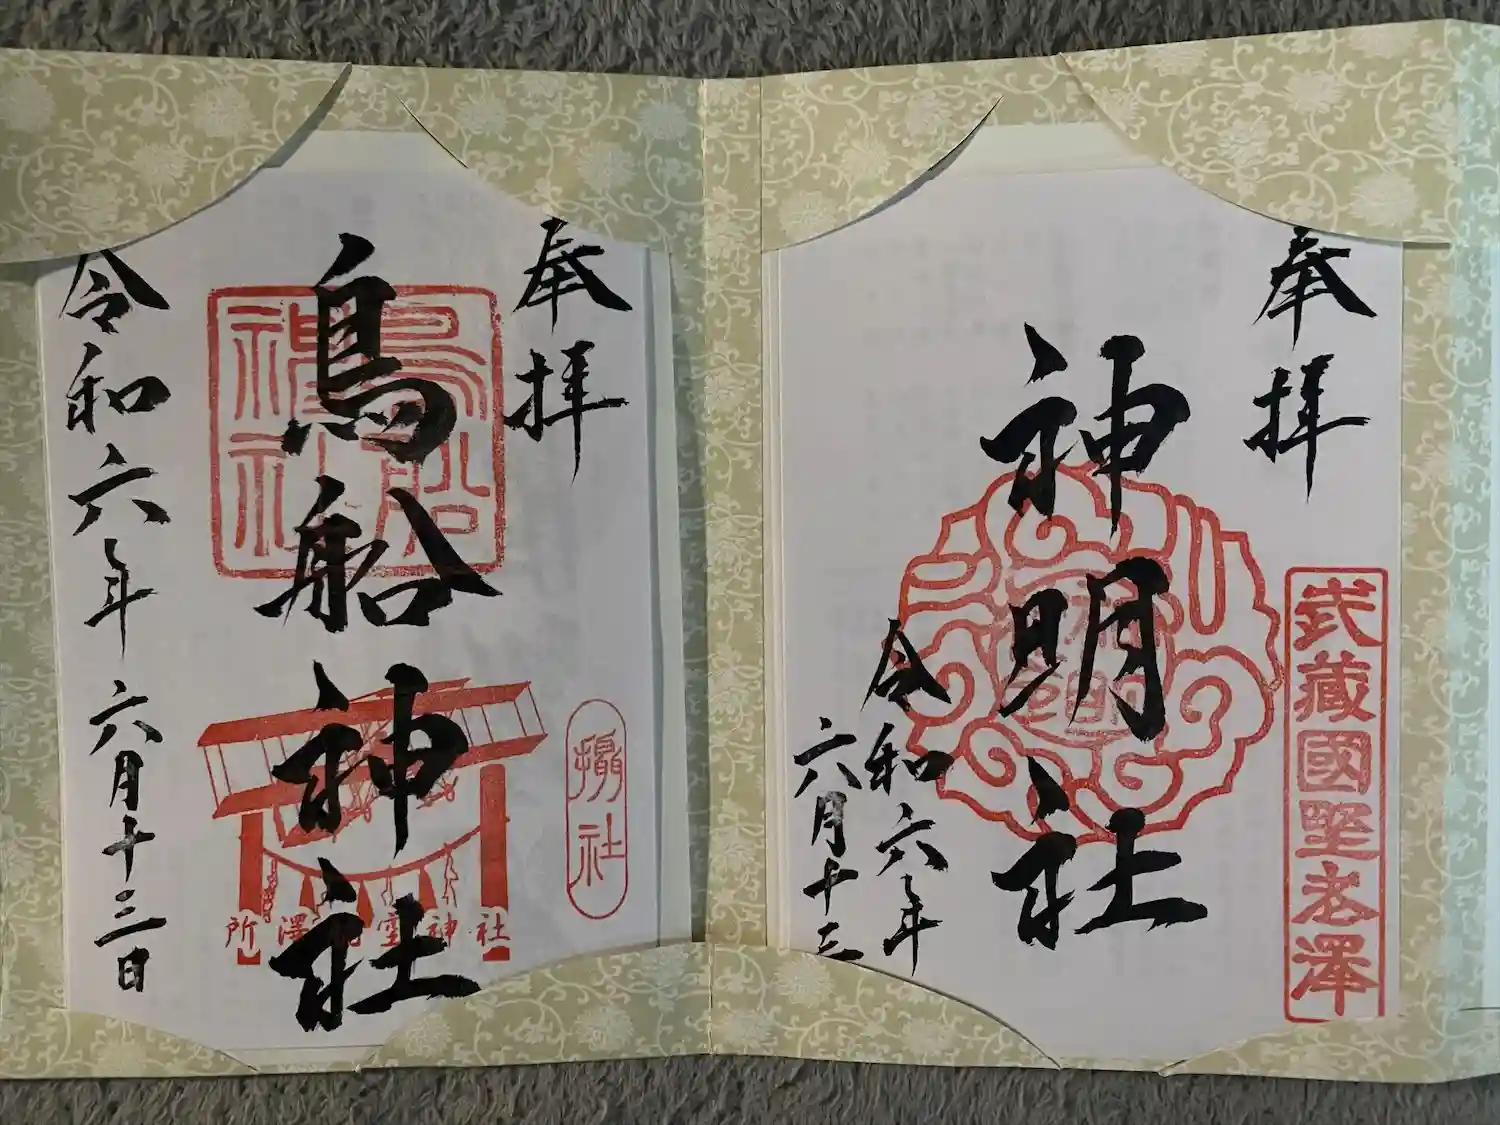 奉拝
武藏國埜老澤
神明社
令和六年
六月十三
奉拝
攝社
鳥船神社
鳥船神社
所澤航空神社
令和六年 六月十三日